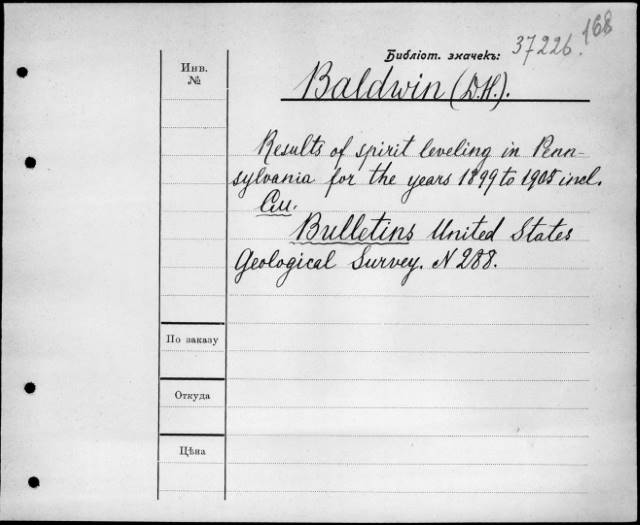 168
Библіот. значекъ: 37226.
Инв.
№
Baldwin (D.H.).
Results of spirit leveling in Penn-
sylvania for the years 1899 to 1905 incl.
См.
Bulletins United States
Geological Survey. N 288.
По заказу
Откуда
Цѣна